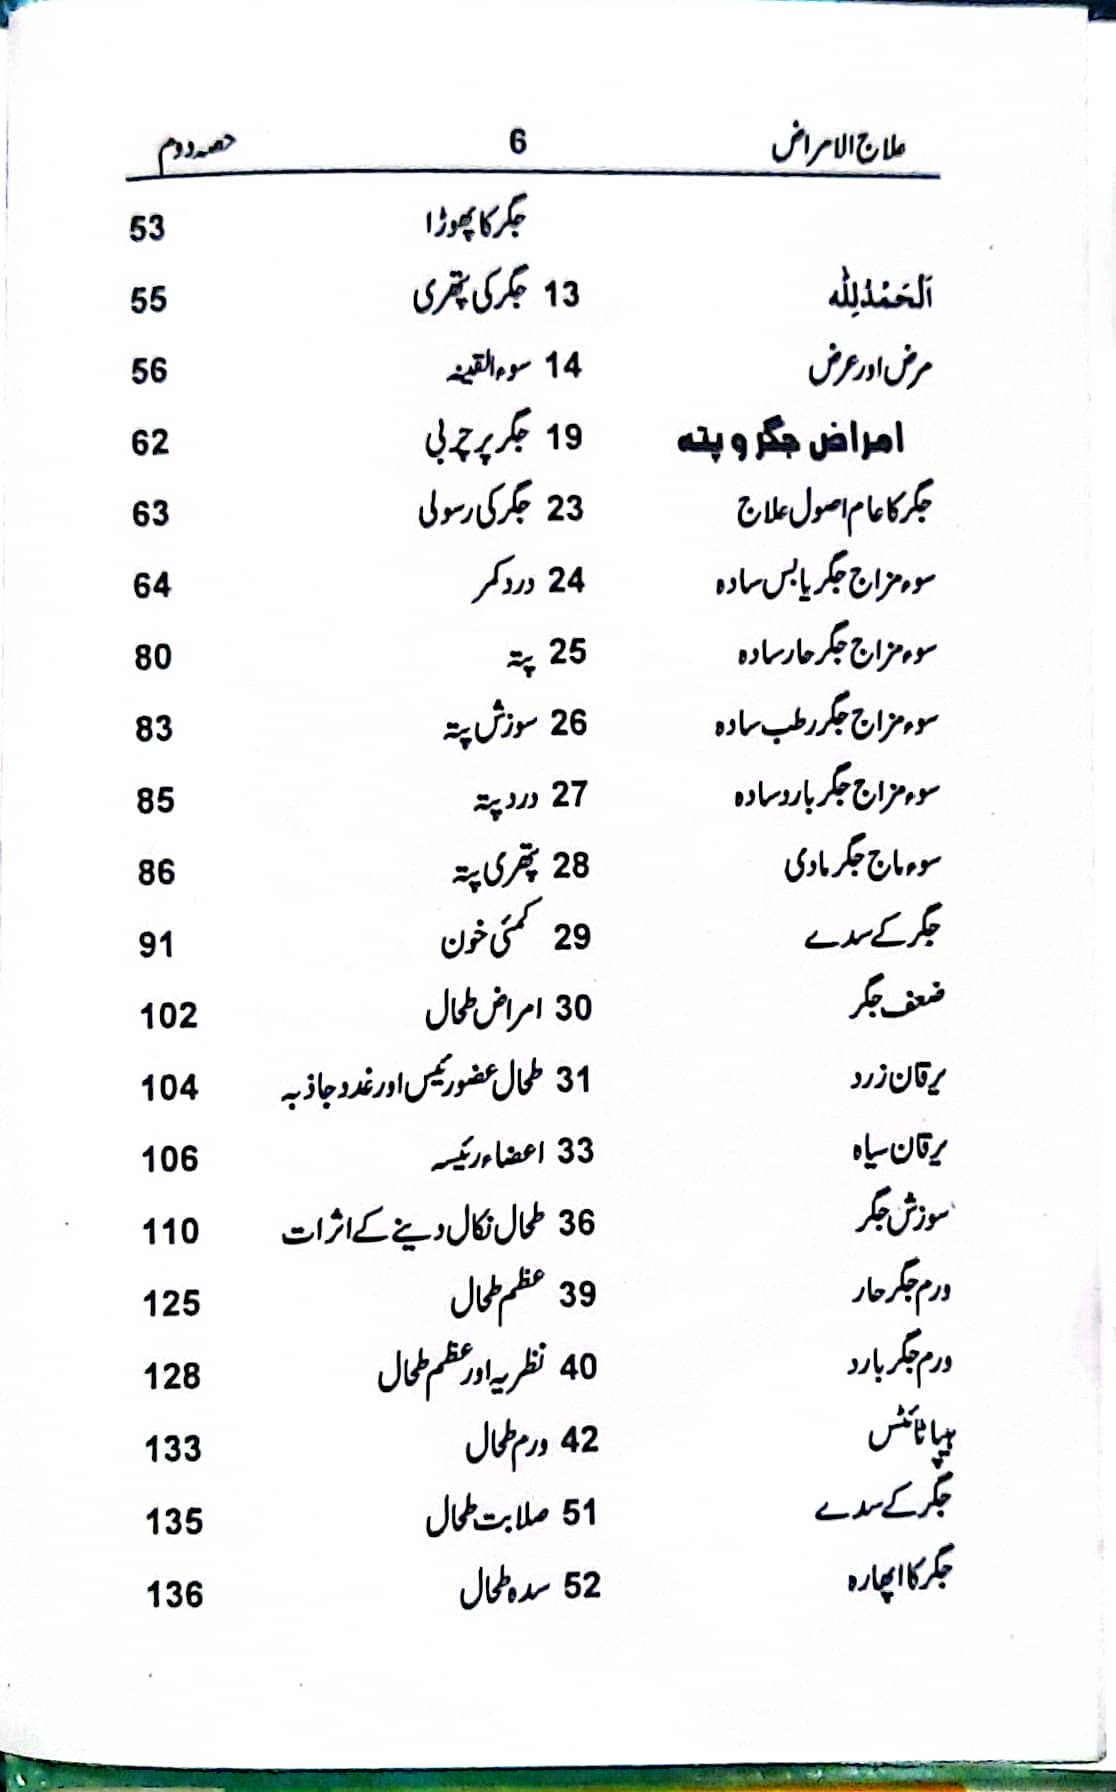 علاج الامراض 6 حصہ دوم
جگر کا پھوڑا 53
اَلْحَمْدُلِلّٰه 13 جگر کی پتھری 55
مرض اور عرض 14 سوء القینہ 56
امراض جگر و پتہ 19 جگر پر چربی 62
جگر کا عام اصول علاج 23 جگر کی رسولی 63
سوء مزاج جگر یابس سادہ 24 درد کمر 64
سوء مزاج جگر حار سادہ 25 پتہ 80
سوء مزاج جگر رطب سادہ 26 سوزش پتہ 83
سوء مزاج جگر بارد سادہ 27 درد پتہ 85
سوء ماج جگر مادی 28 پتھری پتہ 86
جگر کے سدے 29 کمئی خون 91
ضعف جگر 30 امراض طحال 102
یرقان زرد 31 طحال عضو رئیس اور غدد جاذبہ 104
یرقان سیاہ 33 اعضاء رئیسہ 106
سوزش جگر 36 طحال نکال دینے کے اثرات 110
ورم جگر حار 39 عظم طحال 125
ورم جگر بارد 40 نظریہ اور عظم طحال 128
ہیپاٹائٹس 42 ورم طحال 133
جگر کے سدے 51 صلابت طحال 135
جگر کا اپھارہ 52 سدہ طحال 136